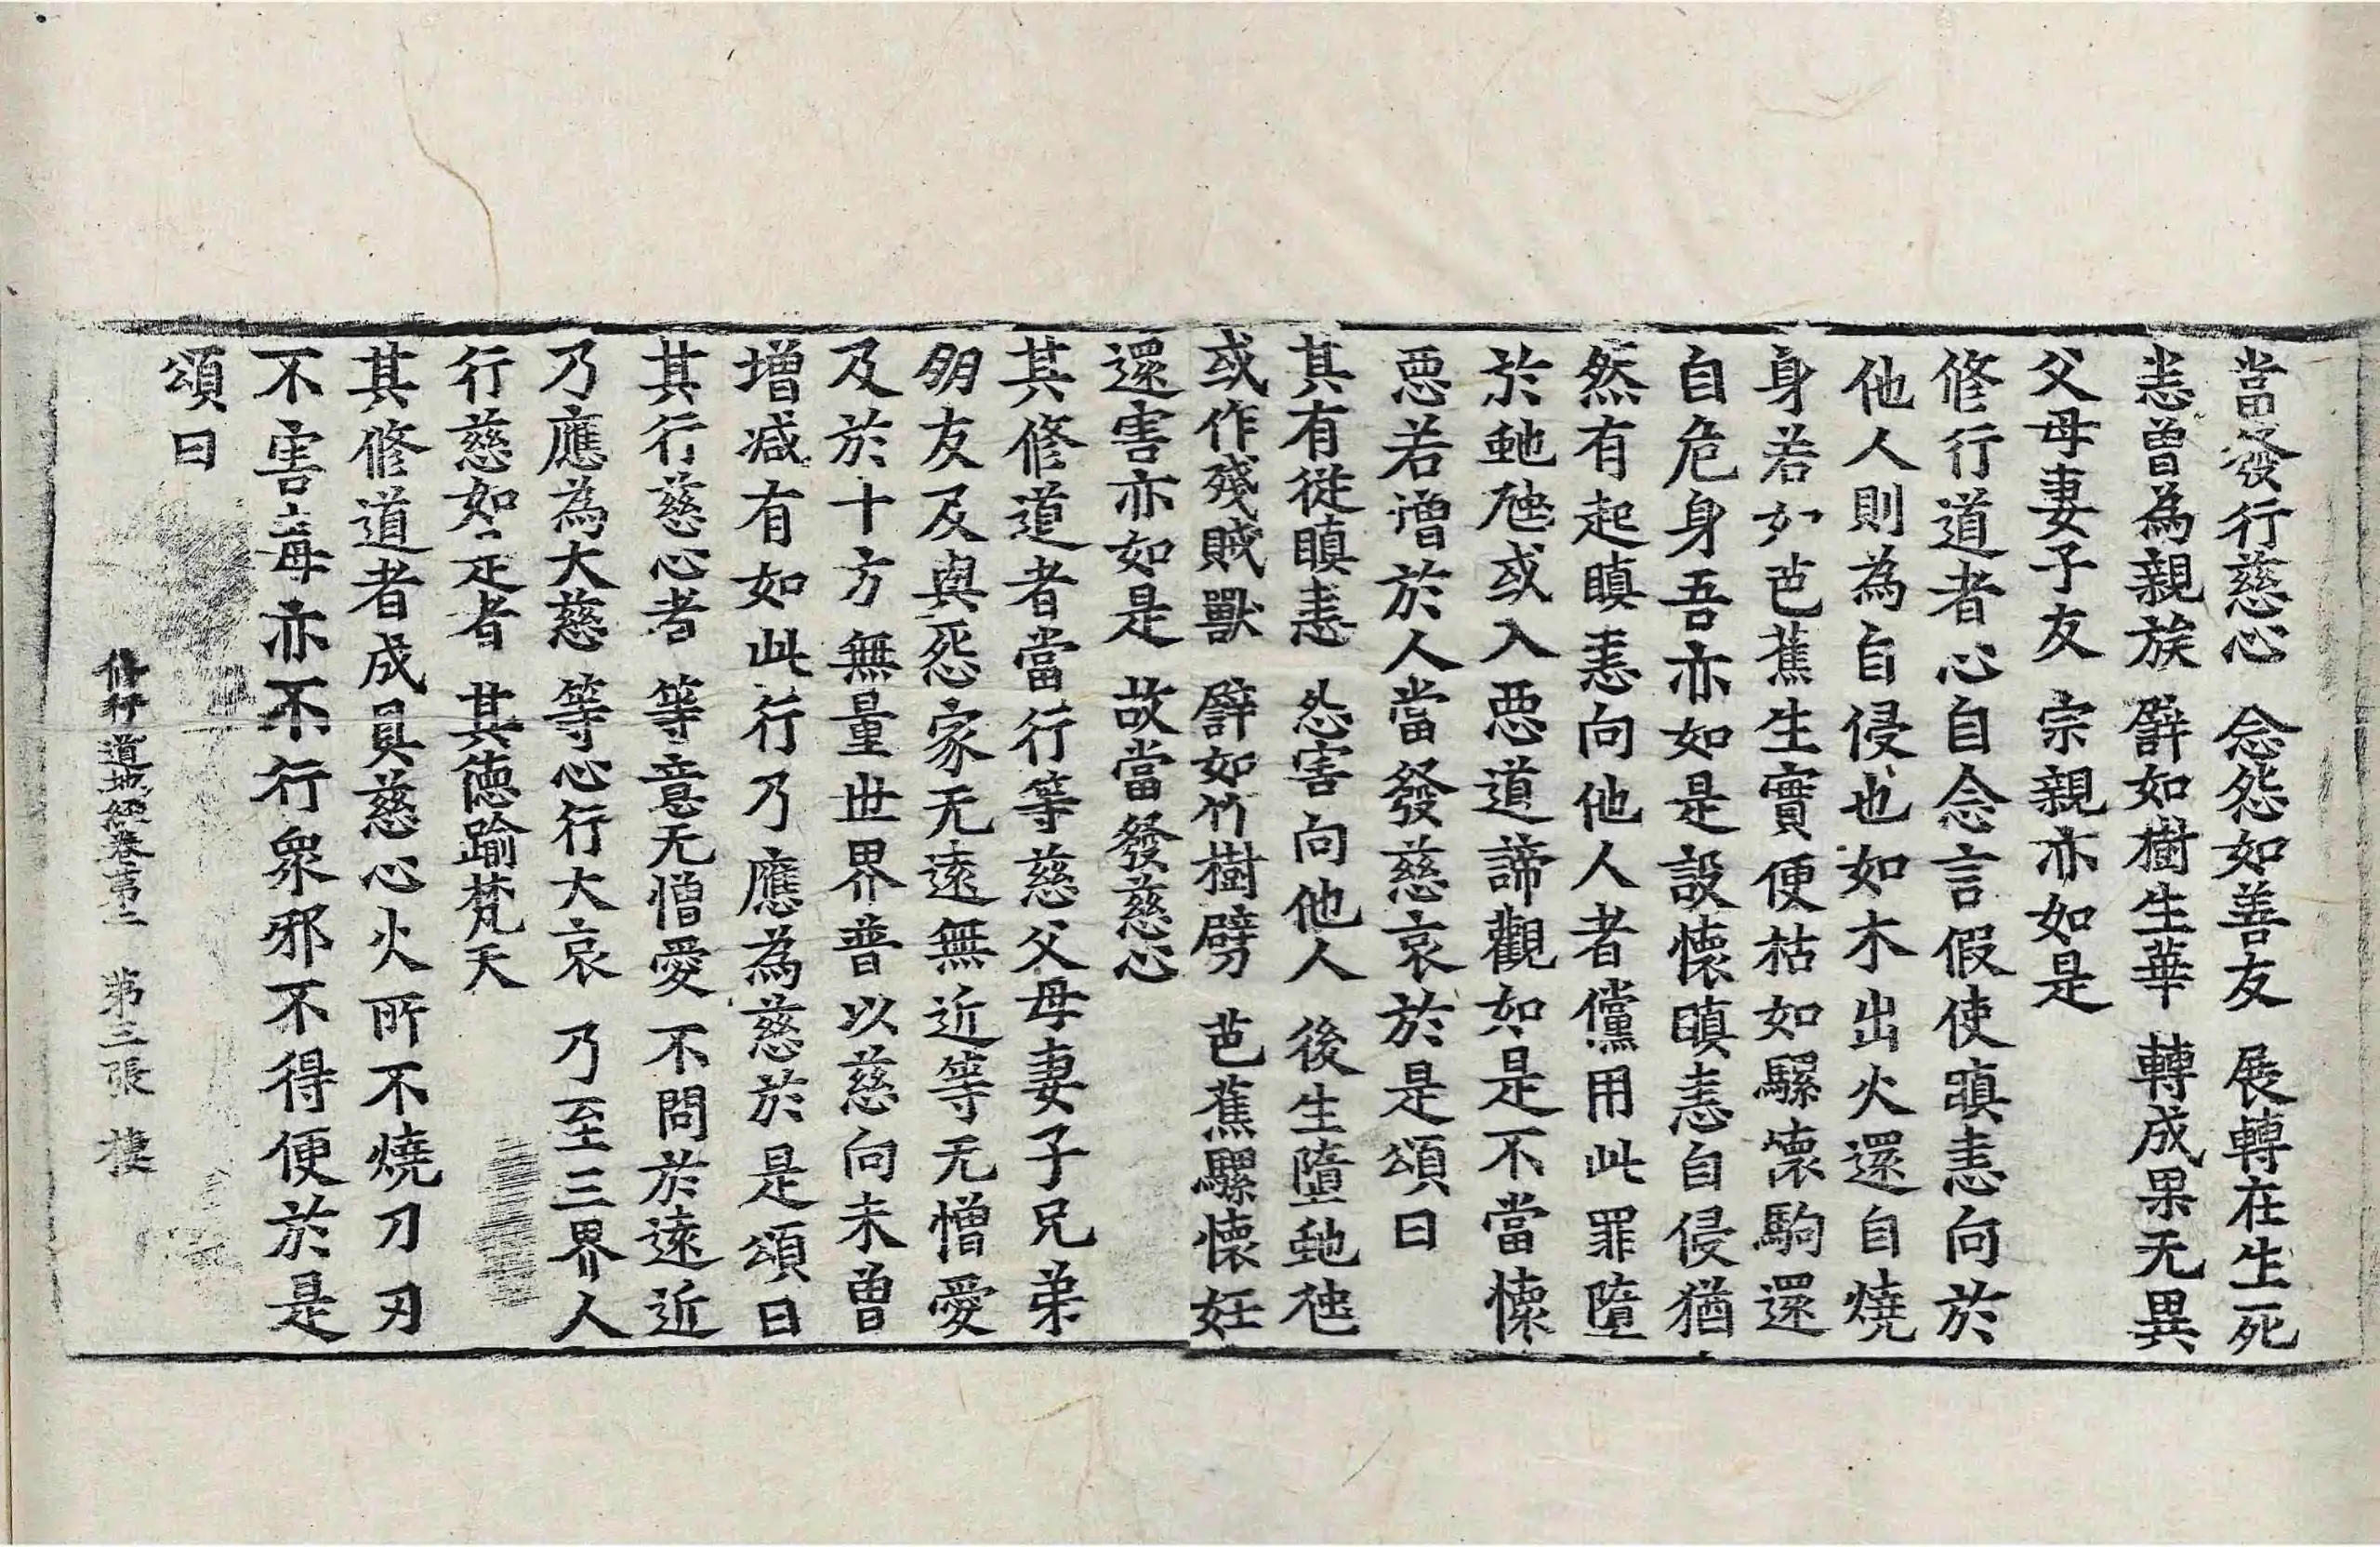 當發行慈心 念怨如善友 展轉在生死
恚曾為親族 譬如樹生華 轉成果无異
父母妻子友 宗親亦如是
修行道者心自念言假使瞋恚向於
他人則為自侵也如木出火還自燒
身若如芭蕉生實便枯如騾懷駒還
自危身吾亦如是設懷瞋恚自侵猶
然有起瞋恚向他人者儻用此罪墮
於虵虺或入惡道諦觀如是不當懷
惡若憎於人當發慈哀於是頌曰
其有從瞋恚 怨害向他人 後生墮虵虺
或作殘賊獸 譬如竹樹劈 芭蕉騾懷妊
還害亦如是 故當發慈心
其修道者當行等慈父母妻子兄弟
朋友及與怨家无遠無近等无憎愛
及於十方無量世界普以慈向未曾
增減有如此行乃應為慈於是頌曰
其行慈心者 等意无憎愛 不問於遠近
乃應為大慈 等心行大哀 乃至三界人
行慈如是者 其德踰梵天
其修道者成具慈心火所不燒刀刃
不害毒亦不行眾邪不得便於是
頌曰
修行道地經卷第二 第三張 棲